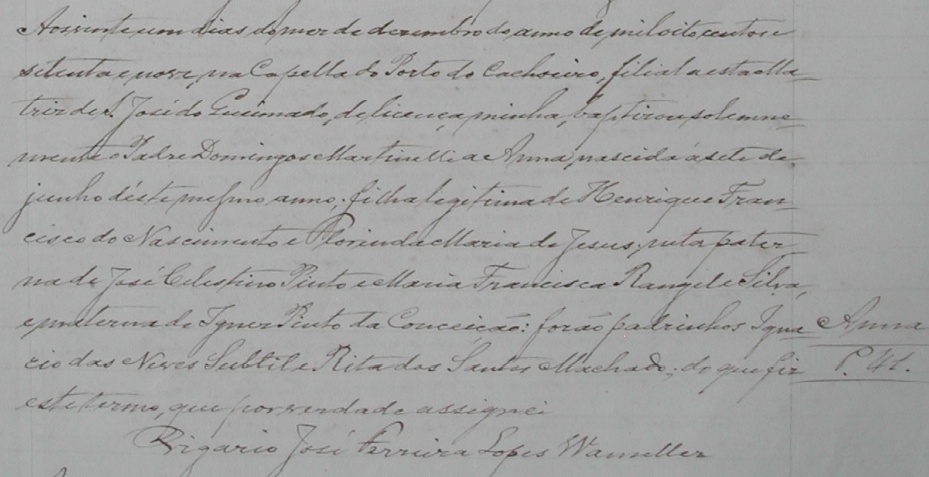 Aos vinte e um dias do mez de dezembro do anno de mil oito centos e
setenta e nove, na Capella do Porto do Cachoeiro, filial a esta Ma-
triz de S. José do Queimado, de licença minha, baptizou solemne-
mente o Padre Domingos Martinelli a Anna, nascida á sete de
junho déste mesmo anno; filha legitima de Henrique Fran-
cisco do Nascimento e Florinda Maria de Jesus; neta pater-
na de José Celestino Pinto e Maria Francisca Rangel e Silva,
e materna de Ignez Pinto da Conceição: forão padrinhos Igna-
Anna
cio das Neves Subtil e Rita dos Santos Machado; do que fiz
este termo, que por verdade assignei
Vigario José Ferreira Lopes